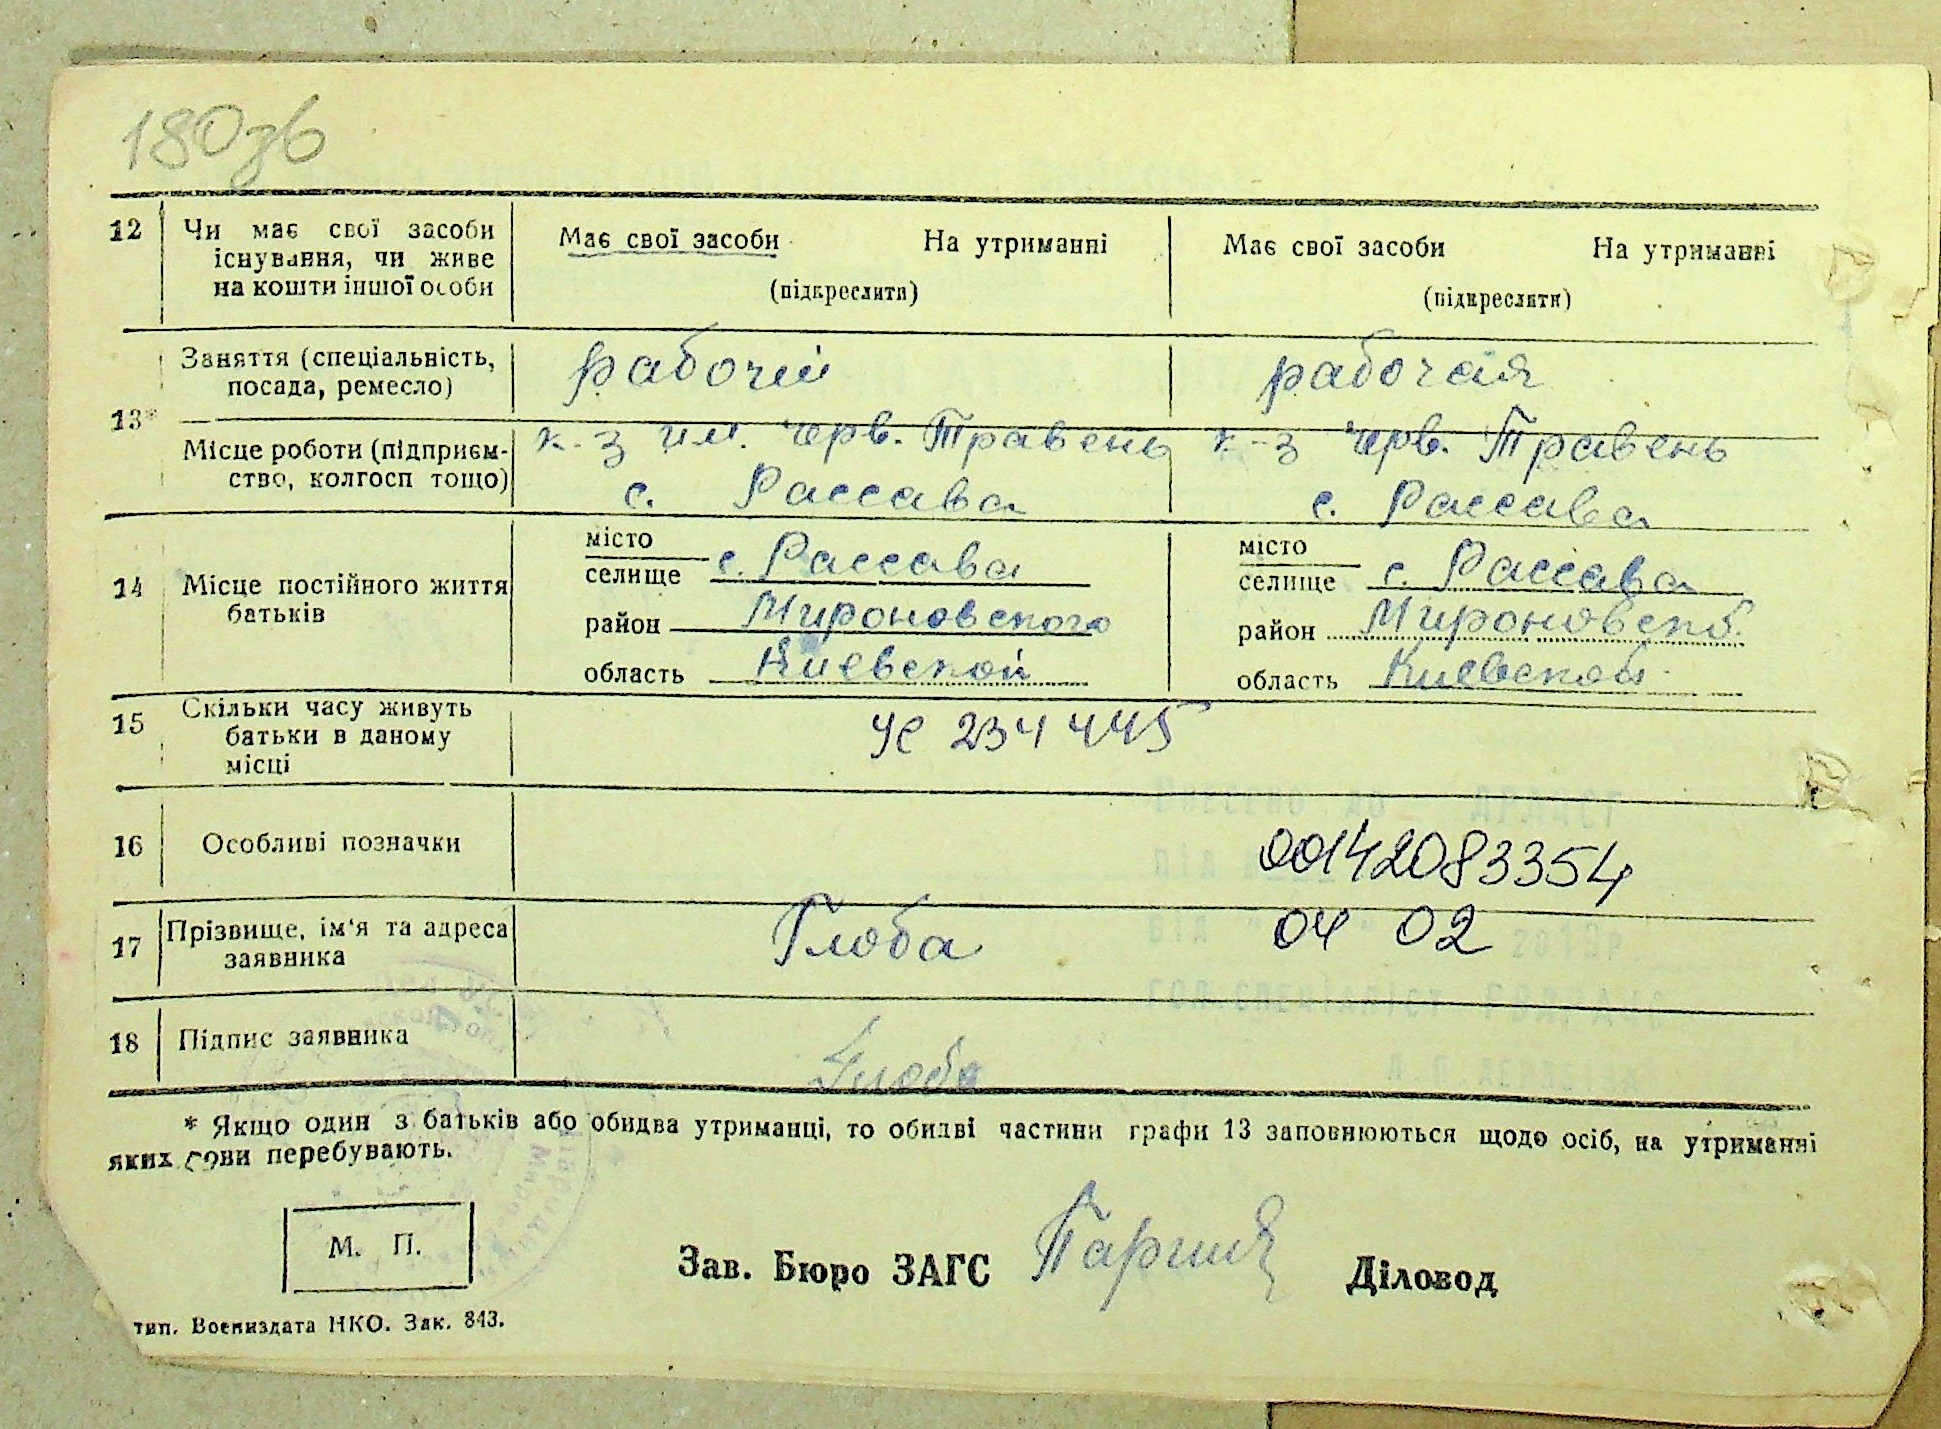 180зв
12 Чи має свої засоби існування, чи живе на кошти іншої особи
Має свої засоби На утриманні
(підкреслити)
Має свої засоби На утриманні
(підкреслити)
13*
Заняття (спеціальність, посада, ремесло)
рабочий
рабочая
Місце роботи (підприєм-
ство, колгосп тощо)
к-з им. Черв. Травень
с. Рассава
к-з Черв. Травень
с. Рассава
14 Місце постійного життя батьків
місто
селище с. Рассава
район Мироновского
область Киевской
місто
селище с. Рассава
район Мироновск
область Киевской
15 Скільки часу живуть батьки в даному місці
УС 234445
16 Особливі позначки
00142083354
17 Прізвище, ім'я та адреса заявника
Глоба
04 02
18 Підпис заявника
Глоба
* Якщо один з батьків або обидва утриманці, то обидві частини графи 13 заповнюються щодо осіб, на утриманні
яких вони перебувають.
М. П.
Зав. Бюро ЗАГС
Діловод
тип. Воениздата НКО. Зак. 843.